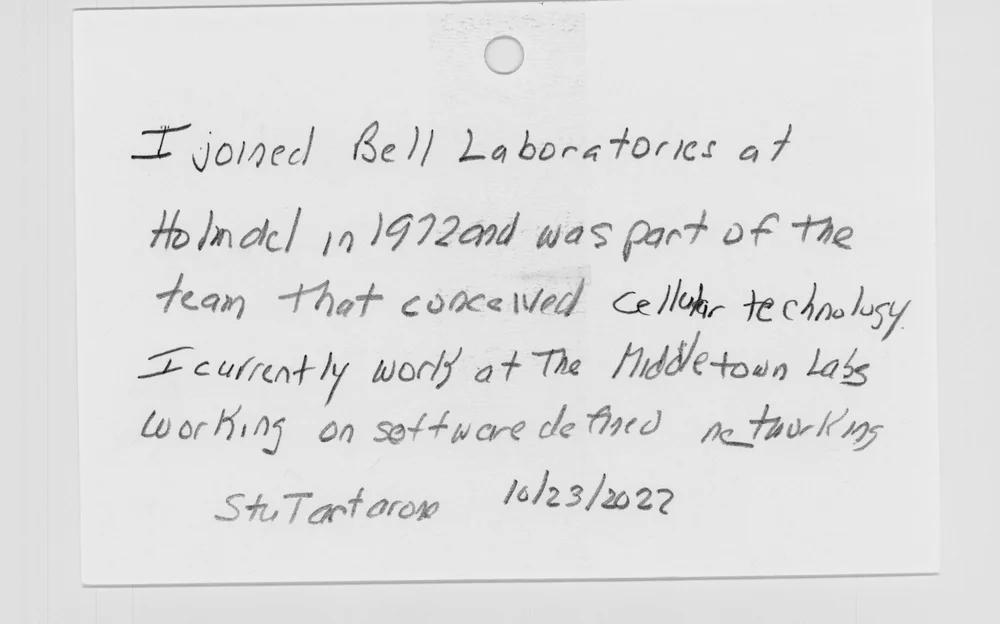 I joined Bell Laboratories at
Holmdel in 1972 and was part of the
team that conceived cellular technology.
I currently work at The Middletown Labs
working on software defined networking
Stu Tartarone 10/23/2022